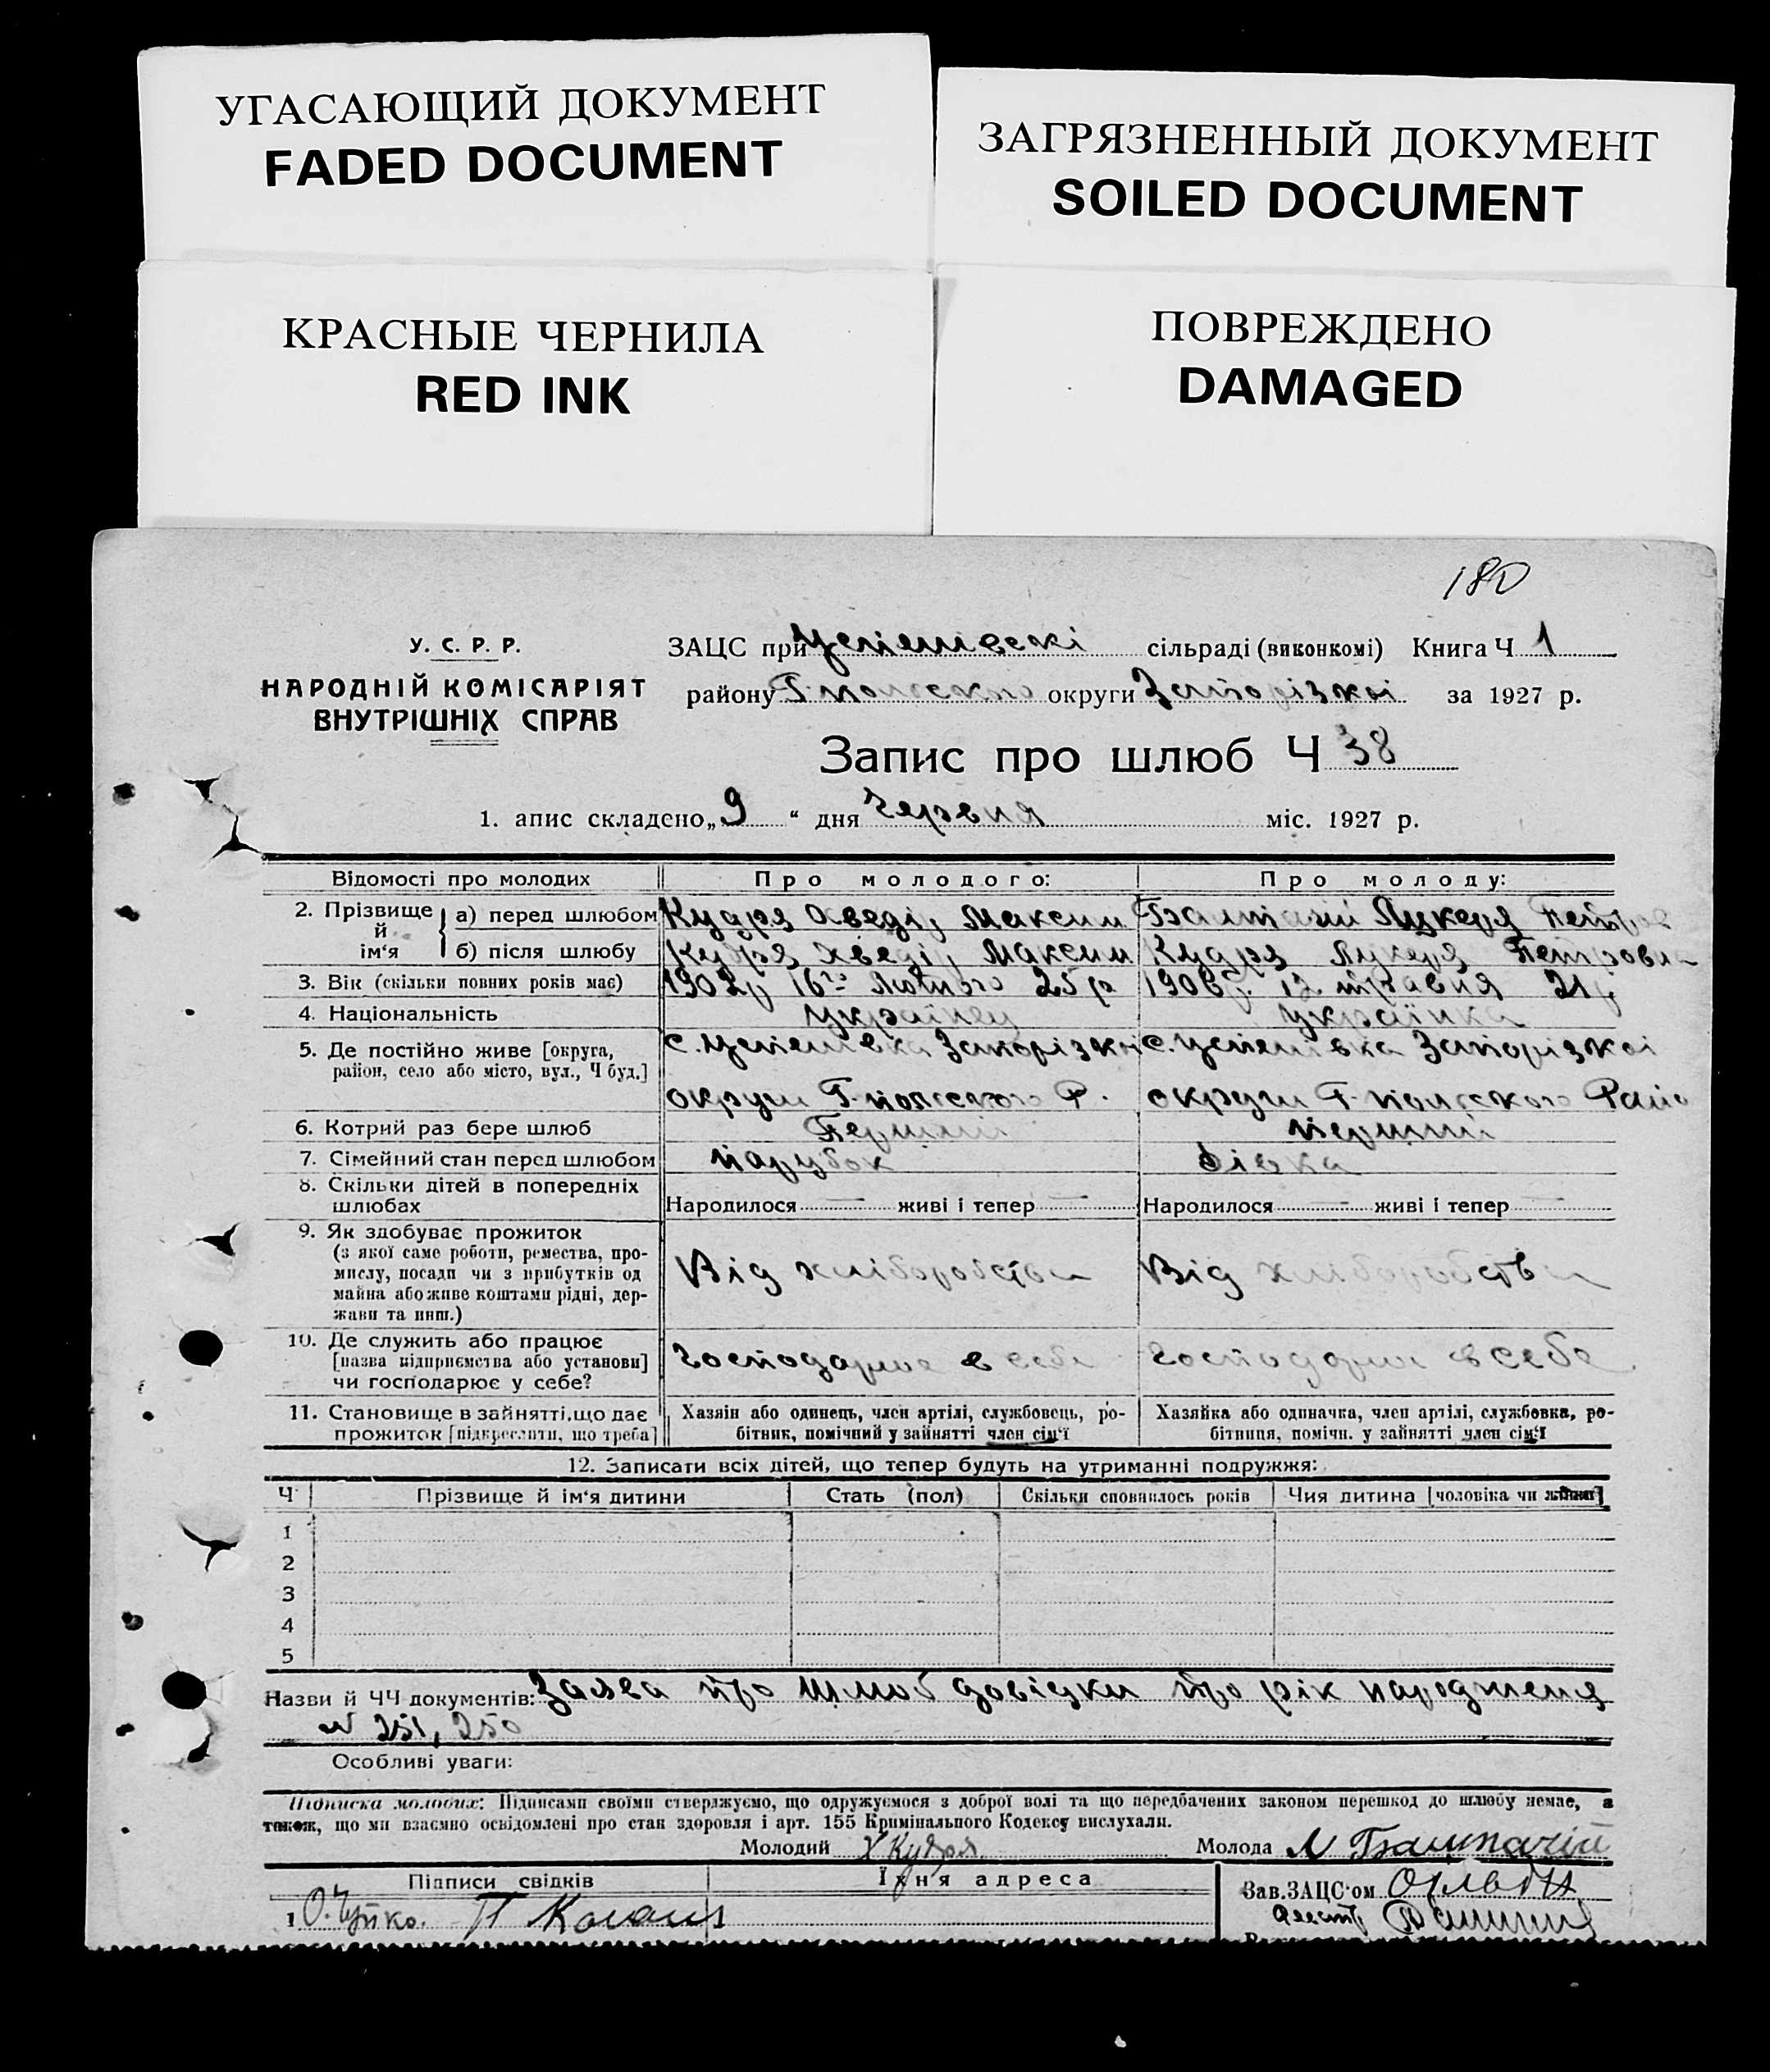 УГАСАЮЩИЙ ДОКУМЕНТ
FADED DOCUMENT
ЗАГРЯЗНЕННЫЙ ДОКУМЕНТ
SOILED DOCUMENT
КРАСНЫЕ ЧЕРНИЛА
RED INK
ПОВРЕЖДЕНО
DAMAGED
180
У. С. Р. Р.
НАРОДНІЙ КОМІСАРІЯТ
ВНУТРІШНІХ СПРАВ
ЗАЦС при Успенівскі сільраді (виконкомі) Книга Ч 1
району Г-польского округи Запорізкої за 1927 р.
Запис про шлюб Ч 38
1. апис складено „9“ дня Червня міс. 1927 р.
Відомості про молодих Про молодого: Про молоду:
2. Прізвище й ім'я а) перед шлюбом Кудря Хведі, Максим Балтачій Лукеря Петров
б) після шлюбу Кудря Хведі, Максим Кудря Лукеря Петровна
3. Вік (скільки повних років має) 1902р 16го Лютого 25 р 1906р. 12 травня 21 р
4. Національність українец українка
5. Де постійно живе [округа, район, село або місто, вул., Ч буд.] с. Успенівка Запорізкої с. Успенівка Запорізкої
округи Г-польского Р. округи Г-польского Райо
6. Котрий раз бере шлюб Перший перший
7. Сімейний стан перед шлюбом парубок дівка
8. Скільки дітей в попередніх шлюбах Народилося — живі і тепер — Народилося — живі і тепер —
9. Як здобуває прожиток
(з якої саме роботи, ремества, про-
мислу, посади чи з прибутків од
майна або живе коштами рідні, дер-
жави та инш.) Від хліборобства Від хліборобства
10. Де служить або працює
[назва підприємства або установи]
чи господарює у себе? Господарює в себе Господарює в себе
11. Становище в зайнятті, що дає
прожиток [підкреслити, що треба] Хазяін або одинець, член артілі, службовець, ро-
бітник, помічний у зайнятті член сім'ї Хазяйка або одиначка, член артілі, службовка, ро-
бітниця, помічн. у зайнятті член сім'ї
12. Записати всіх дітей, що тепер будуть на утриманні подружжя:
Ч Прізвище й ім'я дитини Стать (пол) Скільки сповнилось років Чия дитина [чоловіка чи жінки]
1
2
3
4
5
Назви й ЧЧ документів: Заява про шлюб довідки про рік народженя
N 251, 250
Особливі уваги:
Підписка молодих: Підписами своїми стверджуємо, що одружуємося з доброї волі та що передбачених законом перешкод до шлюбу немає, а
також, що ми взаємно освідомлені про стан здоровля і арт. 155 Кримінального Кодексу вислухали.
Молодий Х Кудря Молода Л Балтачій
Підписи свідків Їхня адреса
Зав. ЗАЦС'ом
1